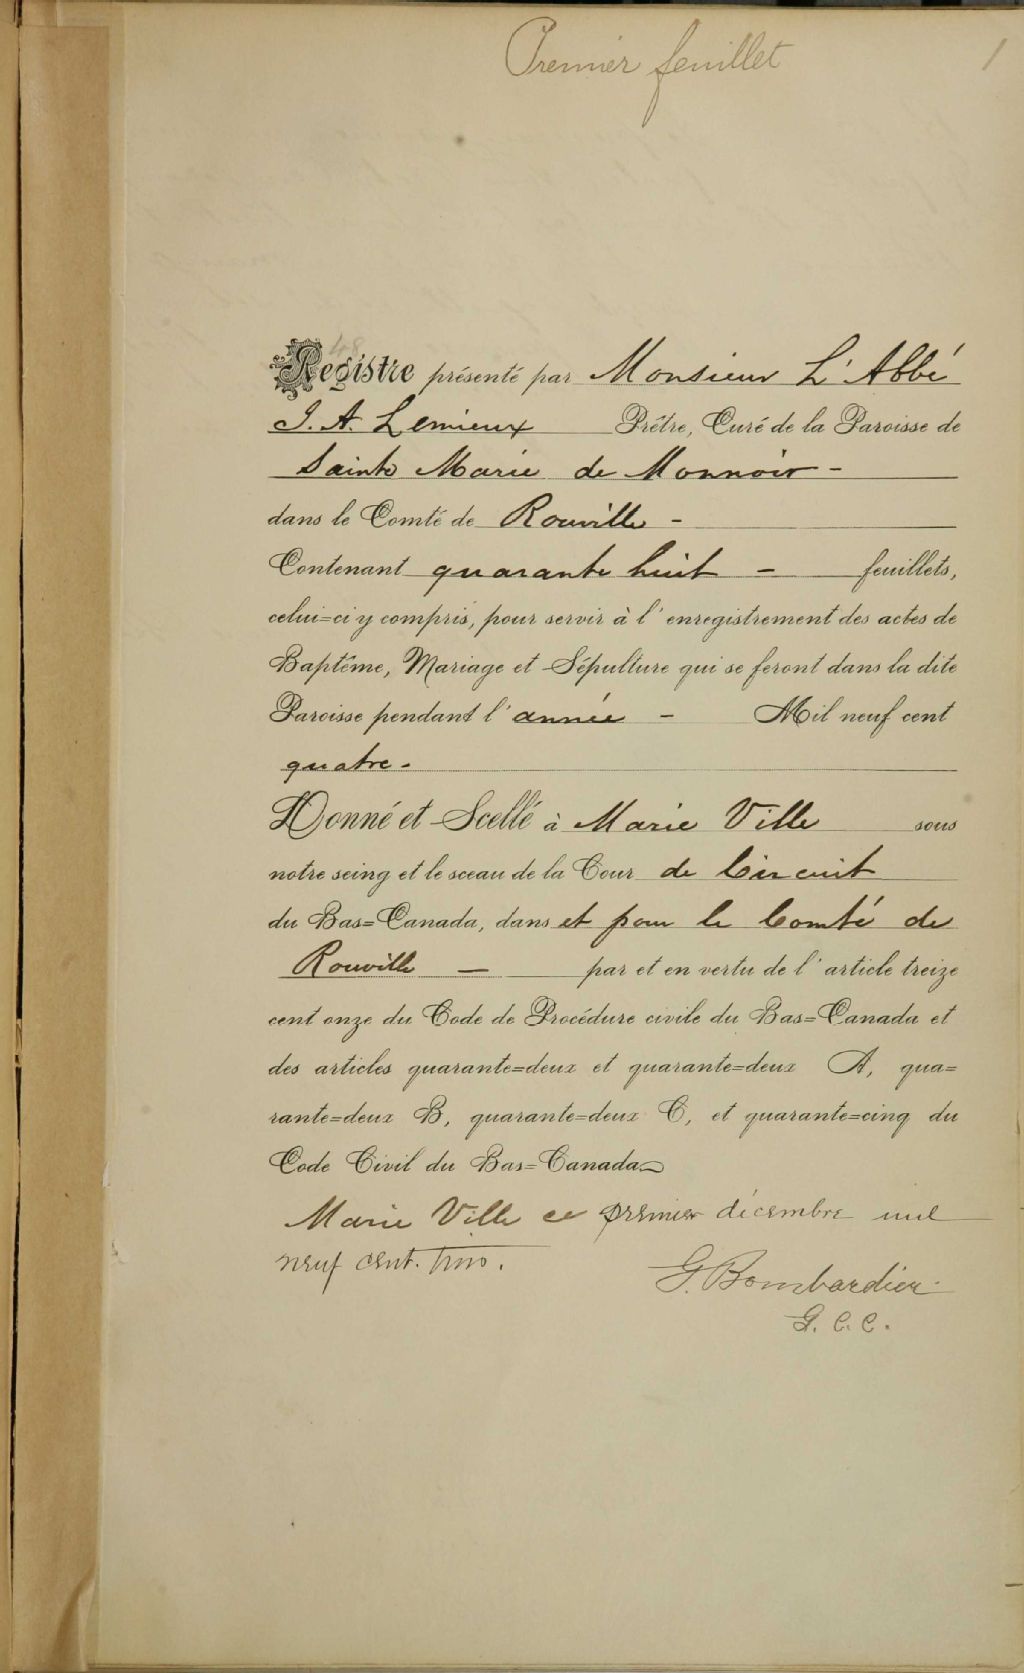 Premier feuillet
1
48
Registre présenté par Monsieur L'Abbé
J. A. Lemieux Prêtre, Curé de la Paroisse de
Sainte Marie de Monnoir -
dans le Comté de Rouville -
Contenant quarante huit - feuillets,
celui=ci y compris, pour servir à l'enregistrement des actes de
Baptême, Mariage et Sépulture qui se feront dans la dite
Paroisse pendant l'année - Mil neuf cent
quatre -
Donné et Scellé à Marie Ville sous
notre seing et le sceau de la Cour de Circuit
du Bas=Canada, dans et pour le Comté de
Rouville - par et en vertu de l'article treize
cent onze du Code de Procédure civile du Bas=Canada et
des articles quarante=deux et quarante=deux A, qua=
rante=deux B, quarante=deux C, et quarante=cinq du
Code Civil du Bas=Canada
Marie Ville ce premier décembre mil
neuf cent trois.
G. Bombardier
G. C. C.